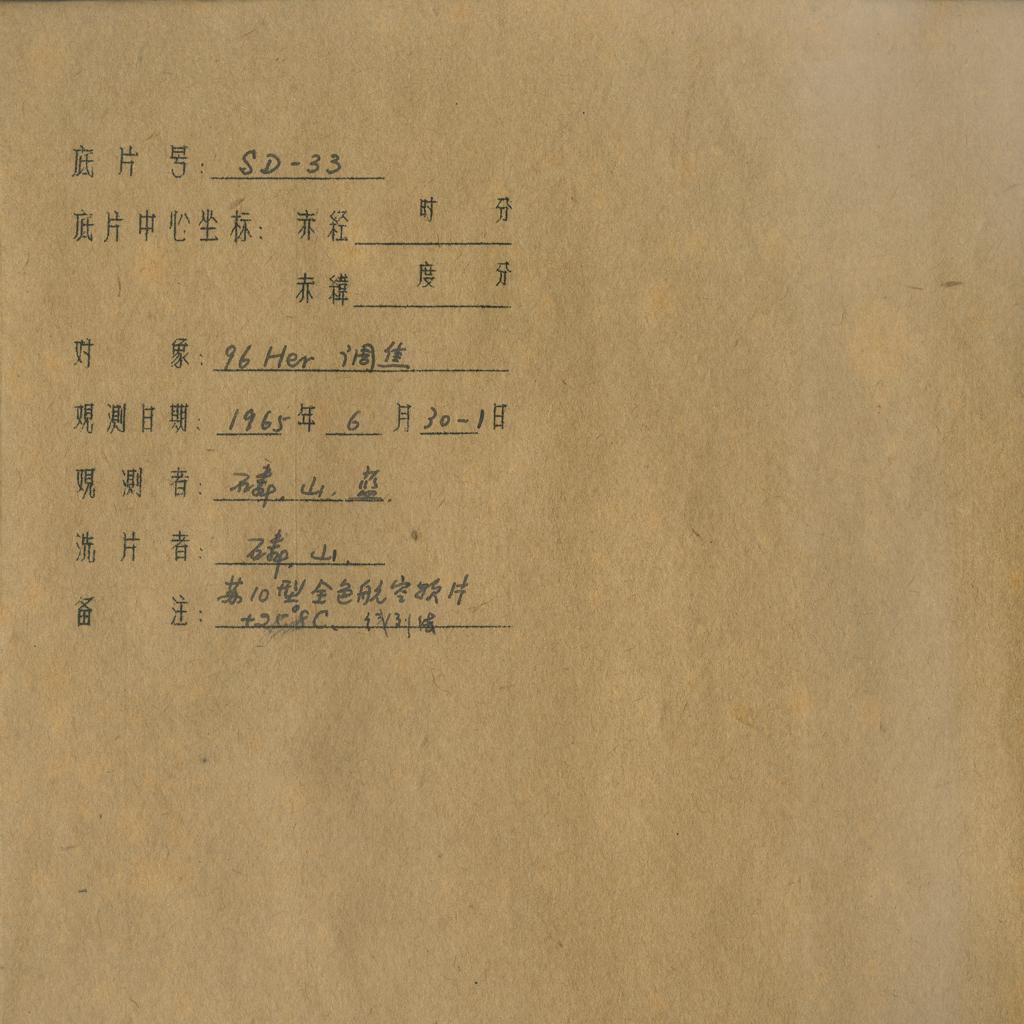 底片号: SD-33
底片中心坐标: 赤经 时 分
赤緯 度 分
对象: 96 Her 调焦
观測日期: 1965年 6 月 30-1日
观測者: 磷, 山, 蓝.
洗片者: 磷, 山,
备注: 苏10型全色航空软片
+25°8C、